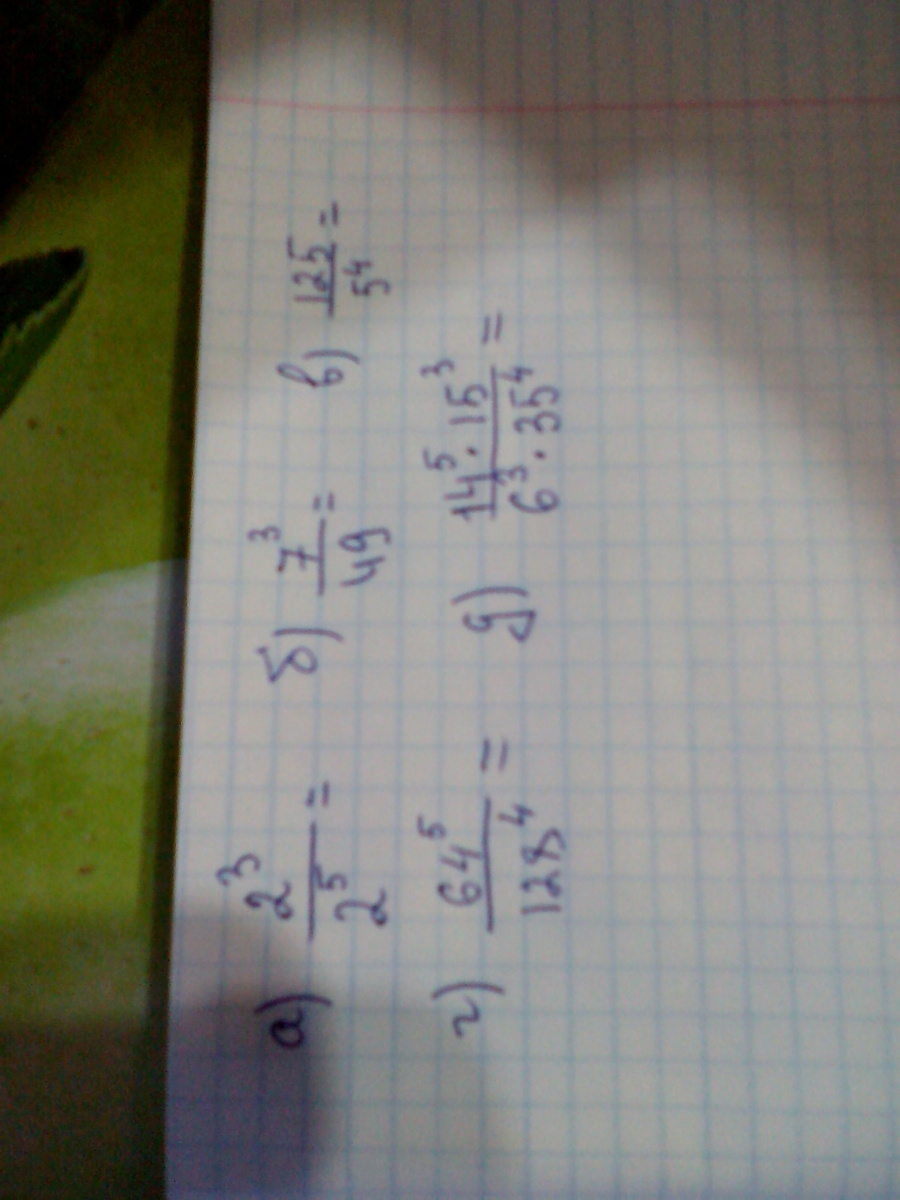 а) 2³/2⁵ = б) 7³/49 = в) 125/5⁴ =
г) 64⁵/128⁴ = д) 14⁵ · 15³/6³ · 35⁴ =